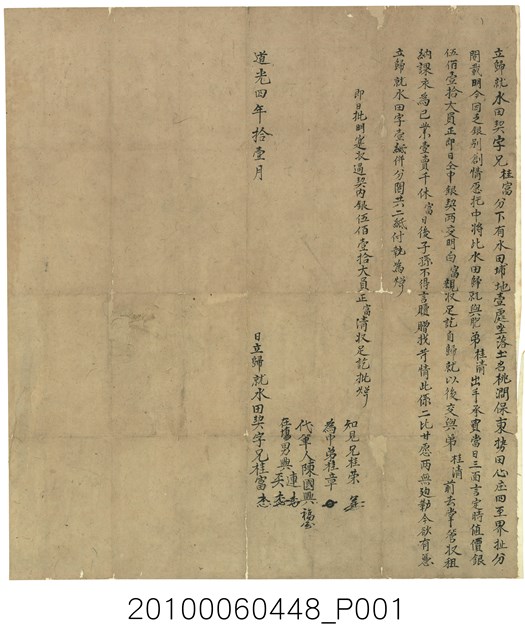 立歸就水田契字兄桂富分下有水田埔地壹處坐落土名桃澗保東勢田心庄四至界址分
開載明今因乏銀別創情愿托中將此水田歸就與胞弟桂清出手承買當日三面言定時值價銀
伍佰壹拾大員正即日仝中銀契兩交明白富親收足訖自歸就以後交與弟桂清前去掌管收租
納課永為己業壹賣千休富日後子孫不得言贖贈找等情此係二比甘愿兩無迫勒今欲有憑
立歸就水田字壹紙併分鬮共二紙付執為炤
即日批明寔收過契內銀伍佰壹拾大員正富清收足訖批炤
知見兄桂榮
為中弟桂章
代筆人陳國興
在場男興
道光四年拾壹月 日立歸就水田契字兄桂富
20100060448_P001